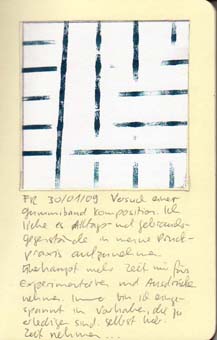 FR 30/01/09 Versuch einer
gummiband Komposition. Ich
liebe es Alltags- und gebrauchs-
gegenstände in meine Druck-
praxis aufzunehmen
Überhaupt mehr Zeit mir fürs
Experimentieren und Ausdrücke
nehmen. Immer bin ich einge-
spannt in Vorhaben, die zu
erledigen sind. selbst hier
Zeit nehmen...